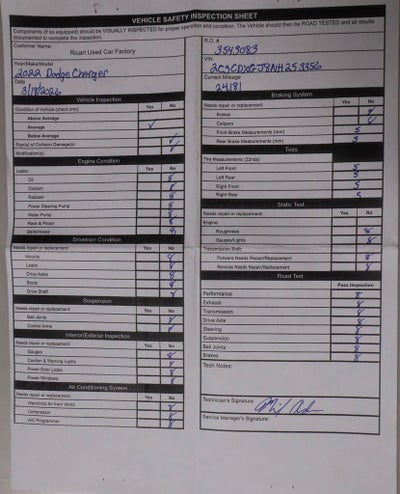 VEHICLE SAFETY INSPECTION SHEET
Components (if so equipped) should be VISUALLY INSPECTED for proper operation and condition. The Vehicle should then be ROAD TESTED and all results documented to complete the inspection.
Customer Name:
Ricart Used Car Factory
R.O. #
3543083
Year/Make/Model
2022 Dodge Charger
VIN
Date
3/18/2026
Current Mileage
24181
Vehicle Inspection
Condition of Vehicle (check one) Yes No
Above Average
Average ✓
Below Average
Sign(s) of Collision Damage(s)
Modification(s)
Engine Condition
Leaks: Yes No
Oil
Coolant
Radiator
Power Steering Pump
Water Pump
Rack & Pinion
Belts/Hoses
Drivetrain Condition
Needs repair or replacement: Yes No
Mounts
Leaks
Drive Axles
Boots
Drive Shaft
Suspension
Needs repair or replacement: Yes No
Ball Joints
Control Arms
Interior/Exterior Inspection
Needs repair or replacement: Yes No
Gauges
Caution & Warning Lights
Power Door Locks
Power Windows
Air Conditioning System
Needs repair or replacement: Yes No
Warm/cold Air from Vents
Compressor
A/C Programmer
Braking System
Needs repair or replacement: Yes No
Brakes
Calipers
Front Brake Measurements (mm) 5
Rear Brake Measurements (mm) 5
Tires
Tire Measurements (32nds)
Left Front 5
Left Rear 5
Right Front 5
Right Rear 5
Static Test
Needs repair or replacement: Yes No
Engine:
Roughness
Gauges/Lights
Transmission Shift:
Forward Needs Repair/Replacement
Reverse Needs Repair/Replacement
Road Test
Pass Inspection
Performance
Exhaust
Transmission
Drive Axle
Steering
Suspension
Ball Joints
Brakes
Tech Notes:
Technician's Signature:
Service Manager's Signature: